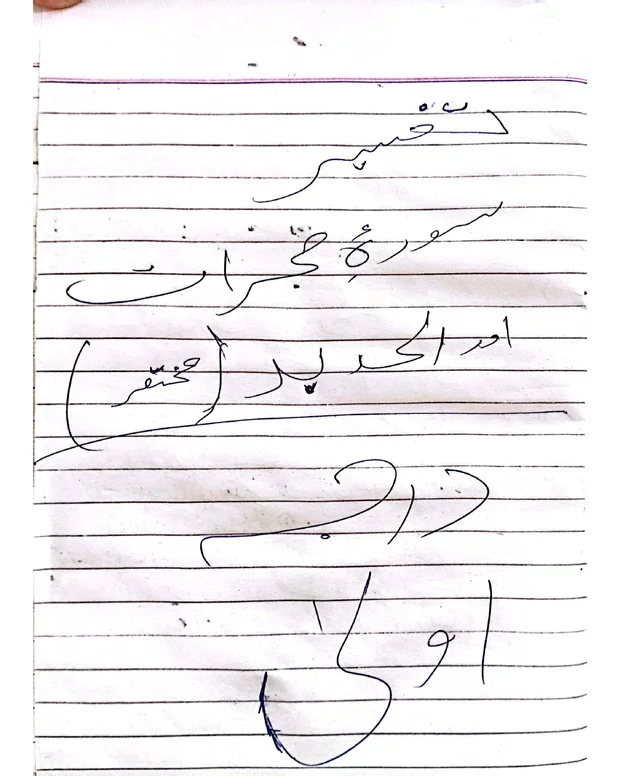 تفسیر
سورۂ حجرات
اور الحدید (مختصر)
درجہ
اولیٰ